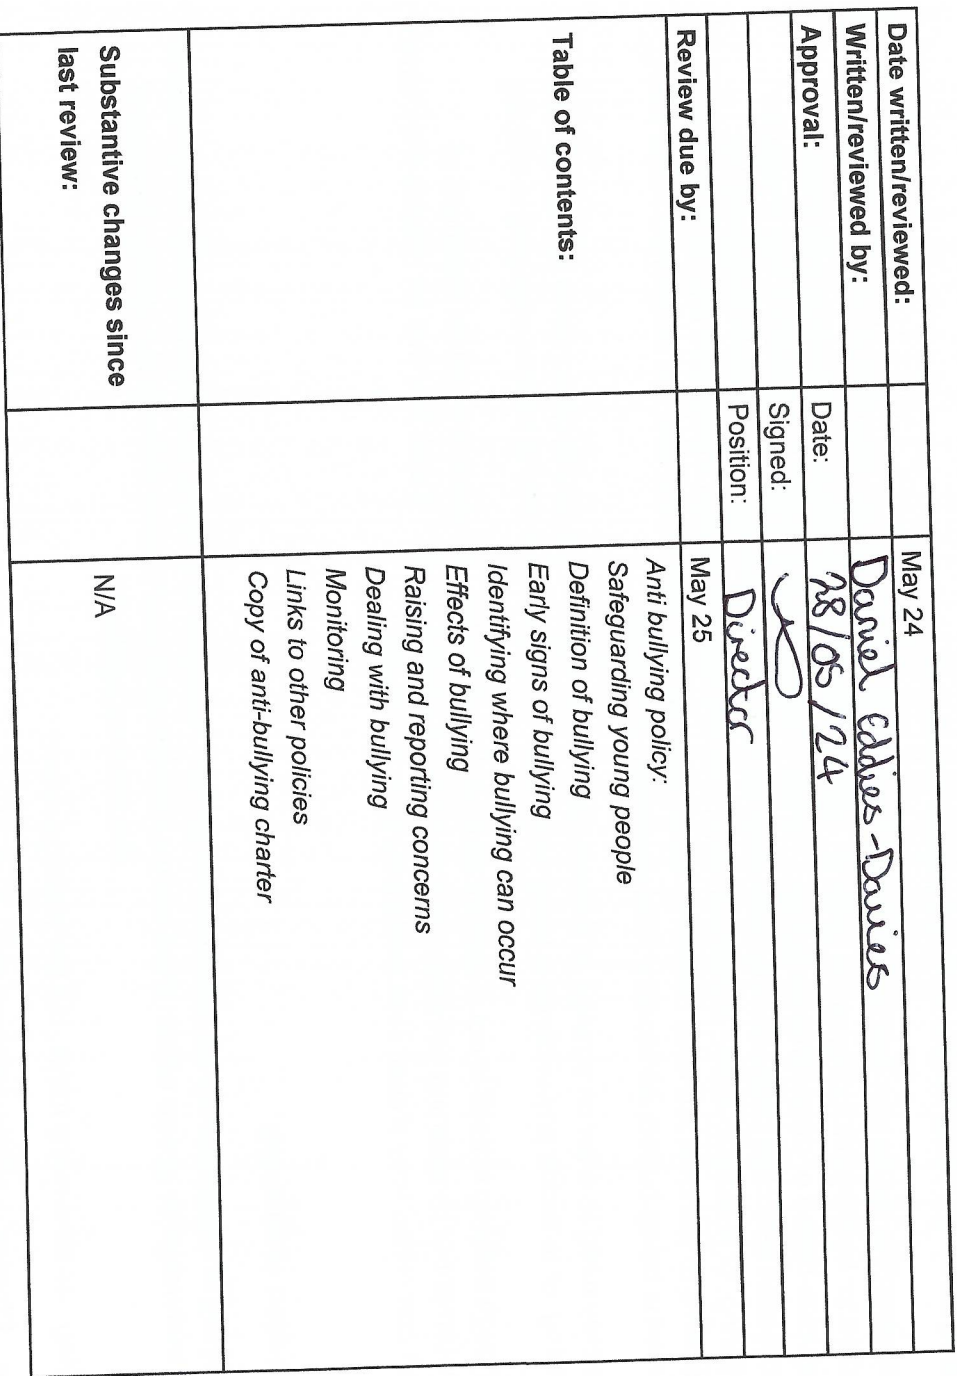 Date written/reviewed: May 24
Written/reviewed by: Daniel Eddies-Davies
Approval: Date: 28/05/24
Signed:
Position: Director
Review due by: May 25
Table of contents:
Anti bullying policy:
Safeguarding young people
Definition of bullying
Early signs of bullying
Identifying where bullying can occur
Effects of bullying
Raising and reporting concerns
Dealing with bullying
Monitoring
Links to other policies
Copy of anti-bullying charter
Substantive changes since
last review:
N/A